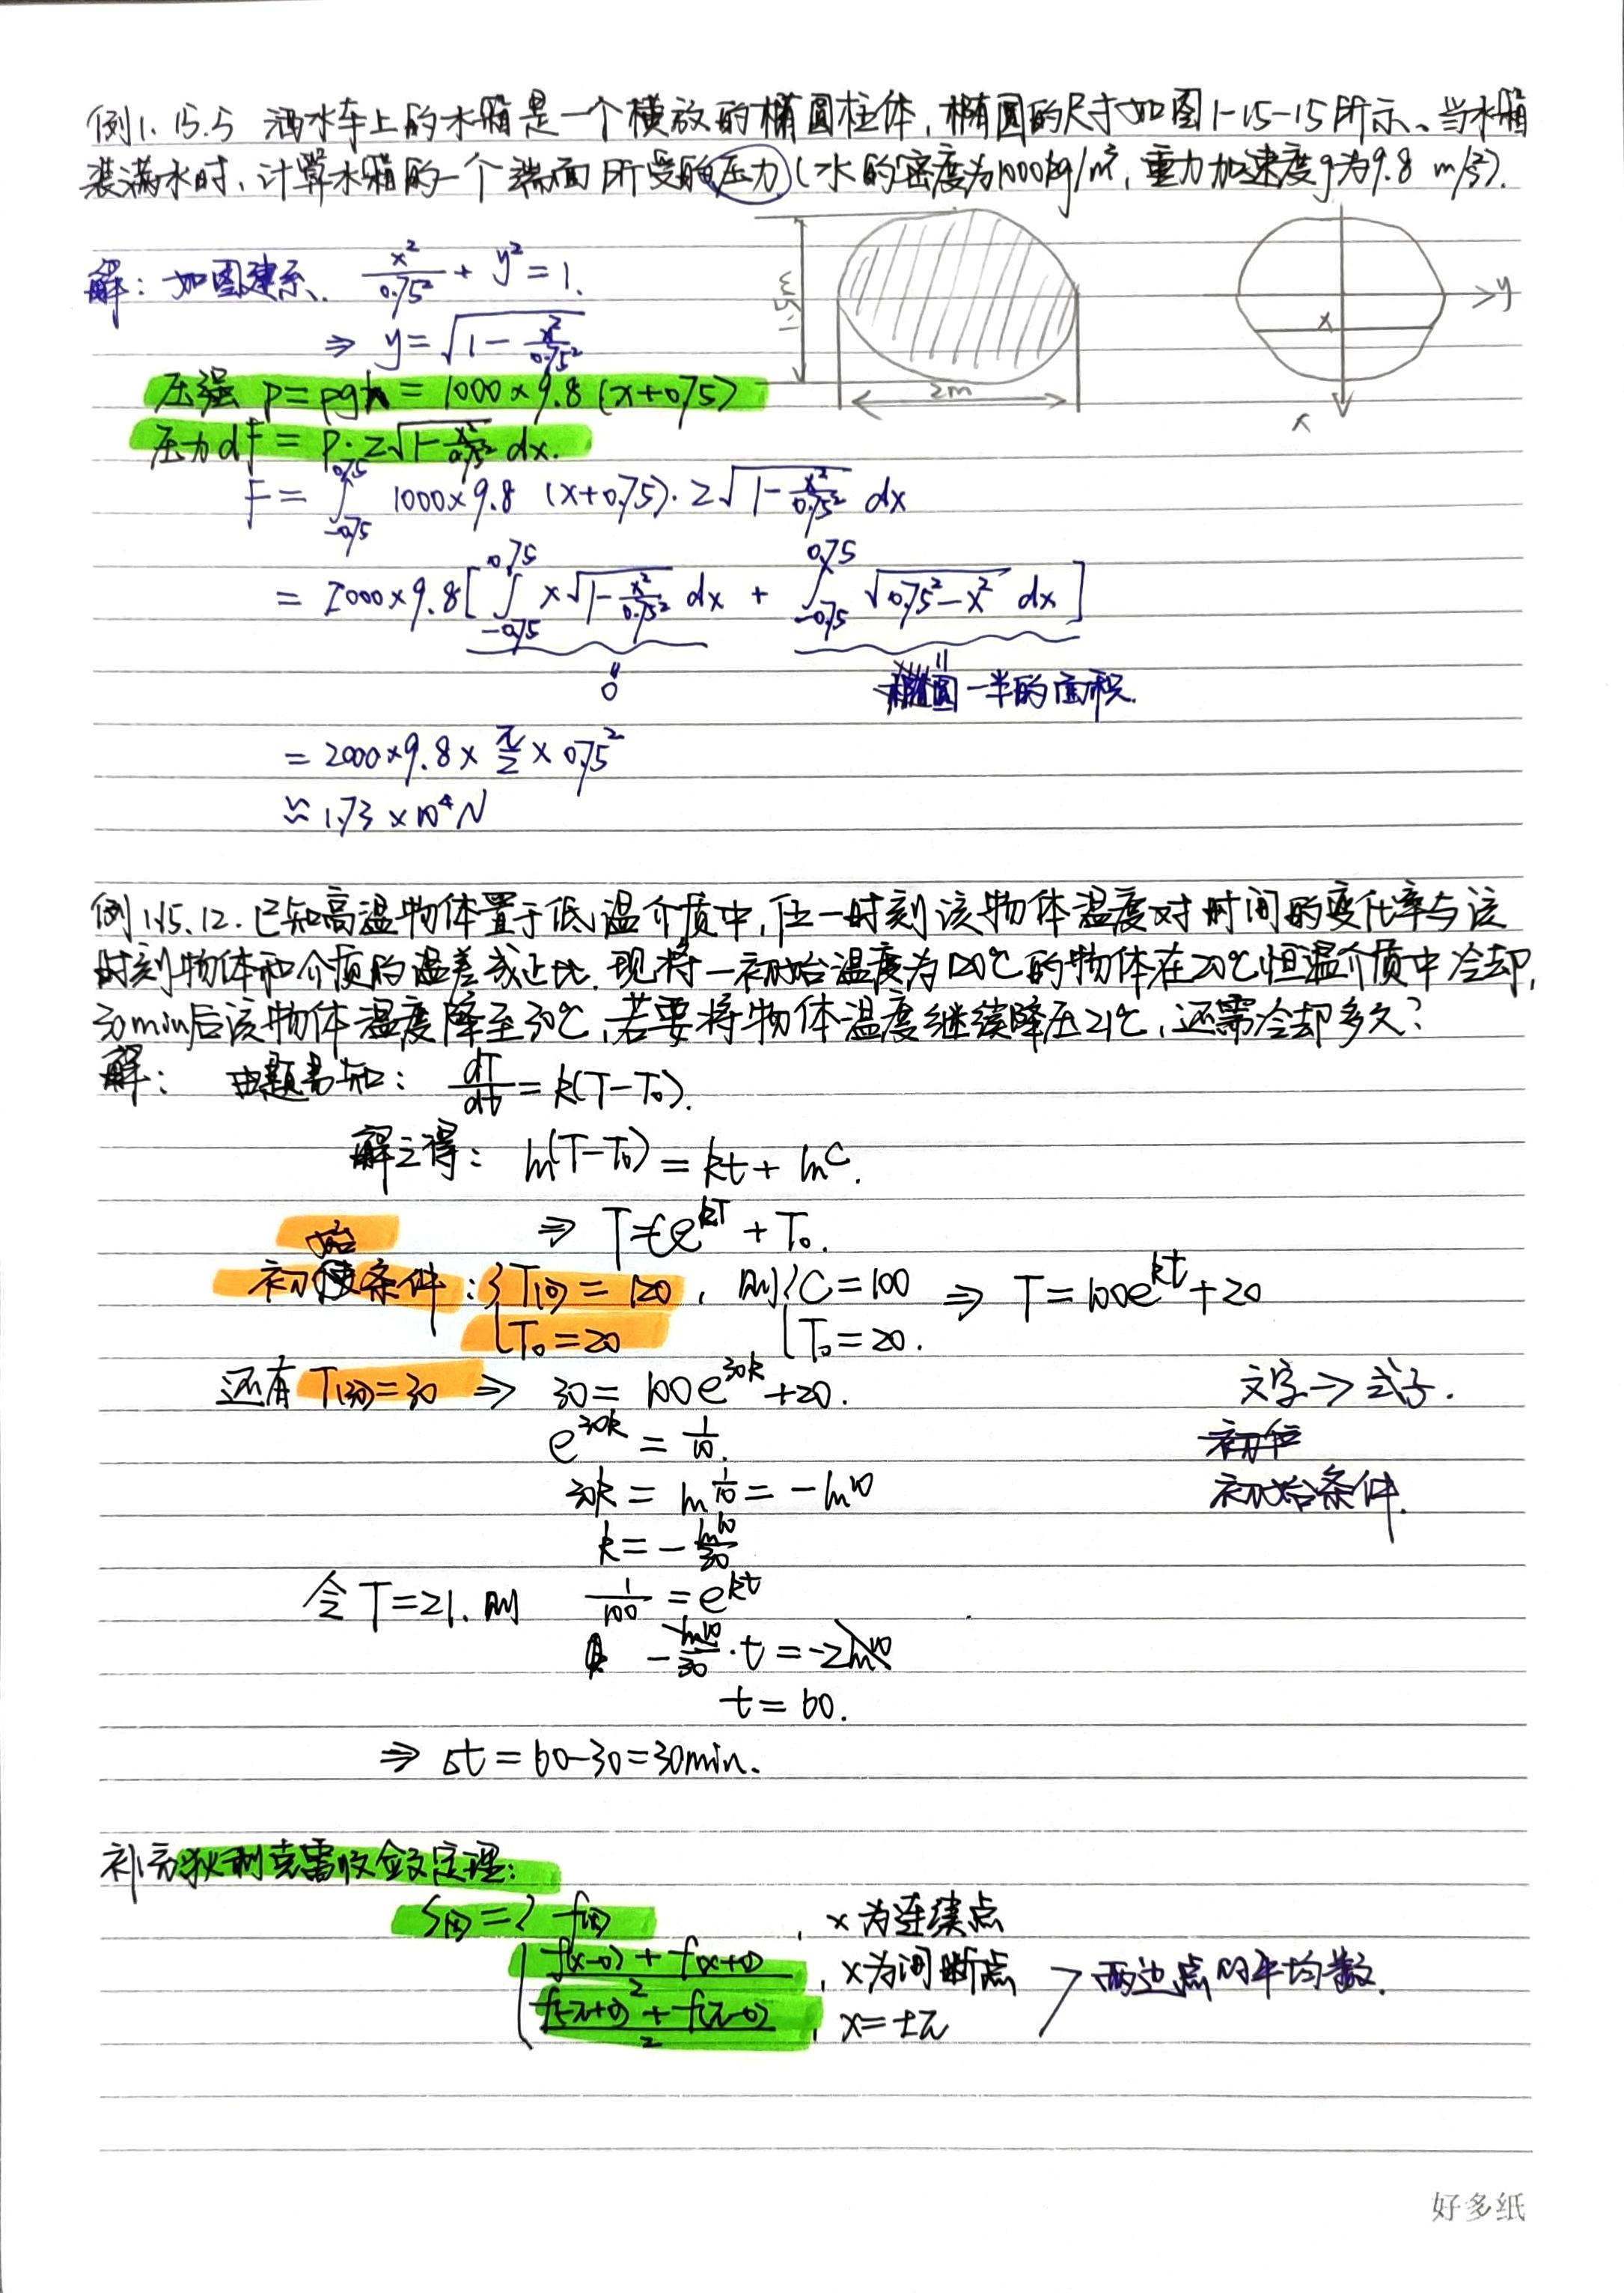 例1.15.5 洒水车上的水箱是一个横放的椭圆柱体，椭圆的尺寸如图1-15-15所示、当水箱
装满水时，计算水箱的一个端面所受的压力(水的密度为1000kg/m³，重力加速度g为9.8 m/s²).
解：如图建系、 x²/0.75² + y² = 1.
⇒ y = √(1 - x²/0.75²)
1.5m
2m
y
x
x
压强 p = ρgh = 1000×9.8 (x+0.75)
压力dF = p·2√(1 - x²/0.75²) dx.
F = ∫_{-0.75}^{0.75} 1000×9.8 (x+0.75)·2√(1 - x²/0.75²) dx
= 2000×9.8[∫_{-0.75}^{0.75} x√(1 - x²/0.75²) dx + ∫_{-0.75}^{0.75} √(0.75² - x²) dx]
0
椭圆一半的面积.
= 2000×9.8×π/2×0.75²
≈ 1.73×10⁴N
例1.15.12. 已知高温物体置于低温介质中，任一时刻该物体温度对时间的变化率与该
时刻物体和介质的温差成正比. 现将一初始温度为120℃的物体在20℃恒温介质中冷却,
30min后该物体温度降至30℃,若要将物体温度继续降至21℃，还需冷却多久？
解： 由题意知： dT/dt = k(T-T₀).
解之得： ln(T-T₀) = kt + lnC.
⇒ T=Ce^{kT} + T₀.
初始条件：{T(0) = 120 , 则{C = 100 ⇒ T = 100e^{kt}+20
T₀ = 20 T₀ = 20.
还有 T(30) = 30 ⇒ 30 = 100e^{30k}+20.
文字→式子.
e^{30k} = 1/10.
初位
30k = ln 1/10 = -ln10
初始条件.
k = - ln10/30
令 T=21. 则 1/100 = e^{kt}
- ln10/30 · t = -2ln10
t = 60.
⇒ Δt = 60-30=30min.
补充狄利克雷收敛定理：
S(x) = { f(x) , x为连续点
(f(x-0) + f(x+0))/2 , x为间断点
两边点的平均数.
(f(-π+0) + f(π-0))/2 , x=±π
好多纸